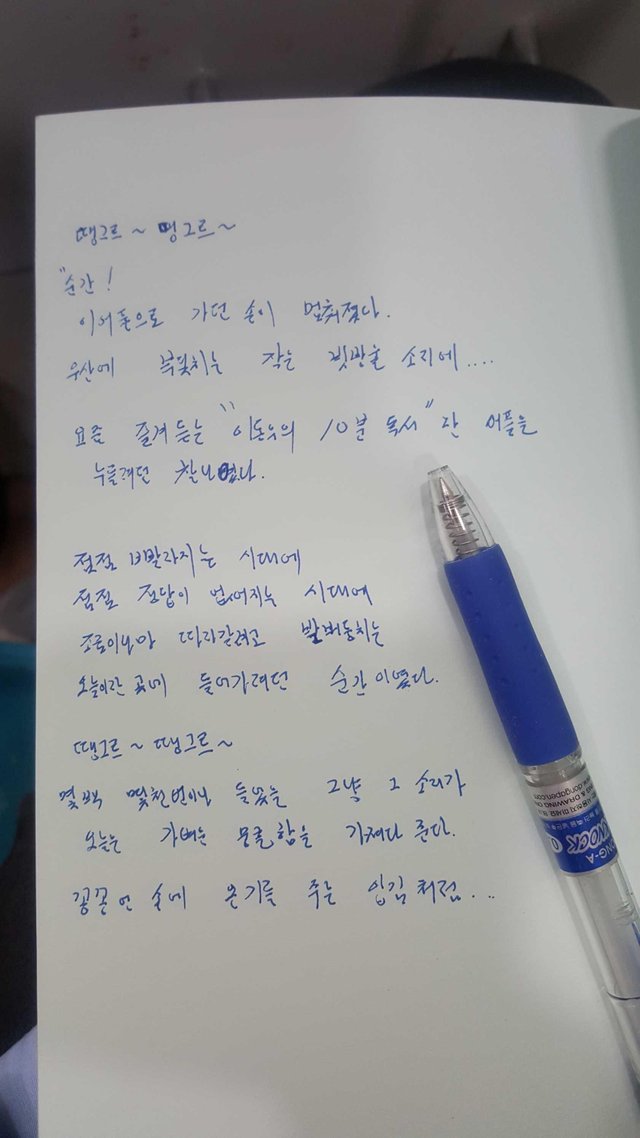 땡그르~ 땡그르~
"순간!
이어폰으로 가던 손이 멈춰졌다.
우산에 부딪치는 작은 빗방울 소리에....
요즘 즐겨듣는 "이돈우의 10분 독서"란 어플을
누를려던 찰나였다.
점점 빨라지는 시대에
점점 정답이 없어지는 시대에
조금이나마 따라갈려고 발버둥치는
오늘이란 곳에 들어가려던 순간이였다.
땡그르~ 땡그르~
몇백 몇천번이나 들었을 그냥 그 소리가
오늘은 가벼운 뭉클함을 가져다 준다.
꽁꽁 언 손에 온기를 주는 입김처럼...
DONG-A
KNOCK
& DRAWING
www.dongapen.com